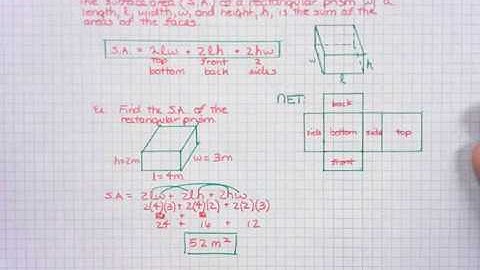 The surface area (S.A.) of a rectangular prism w/ a
length, l, width, w, and height, h, is the sum of the
areas of the faces.
S.A. = 2lw + 2lh + 2hw
top front 2
bottom back sides
h
l
NET:
back
side bottom side top
front
Ex. Find the S.A. of the
rectangular prism.
h=2m
w=3m
l=4m
S.A = 2lw + 2lh + 2hw
2(4)(3) + 2(4)(2) + 2(2)(3)
24 + 16 + 12
52 m²